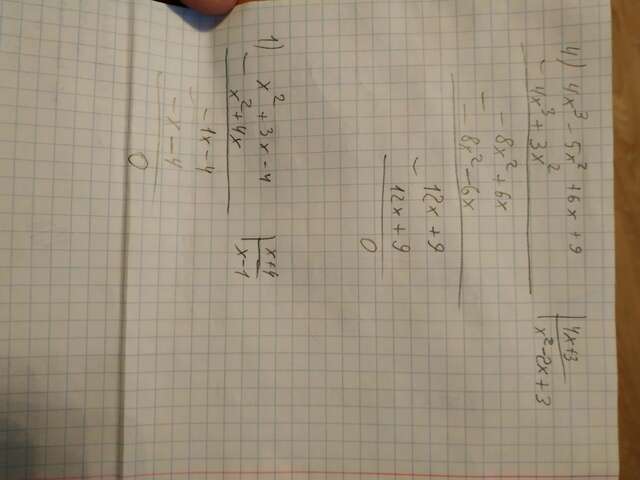 4) 4x³ - 5x² + 6x + 9 | 4x+3
- 4x³ + 3x² | x² - 2x + 3
- 8x² + 6x
- - 8x² - 6x
12x + 9
- 12x + 9
0
1) x² + 3x - 4 | x+4
- x² + 4x | x-1
- 1x - 4
- - x - 4
0